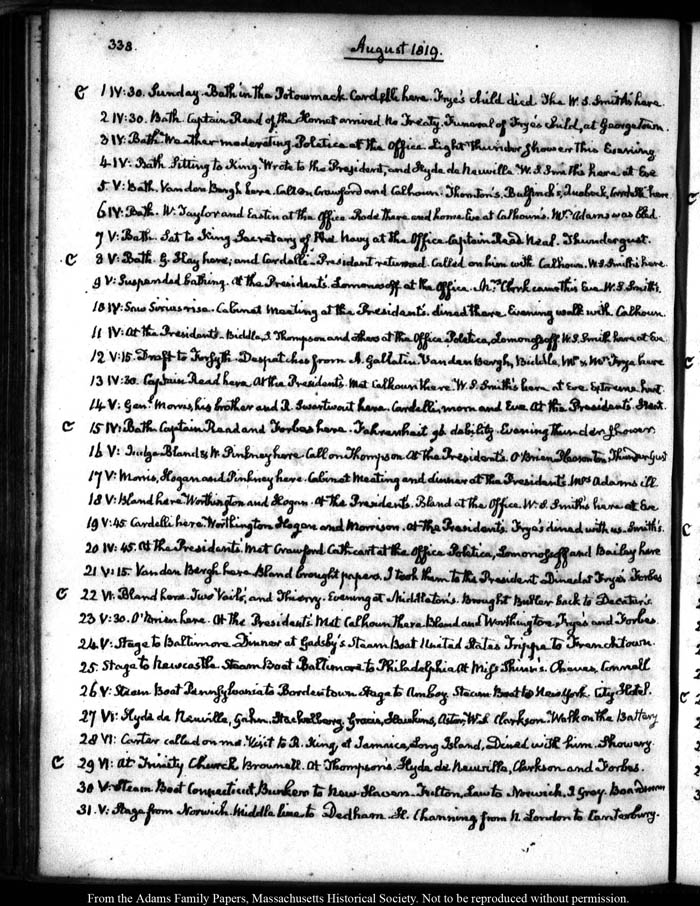 338.
August 1819.
C 1 IV:30. Sunday. Bath in the Potowmack Cardelli here. Frye's child died. The W. S. Smiths here.
2 IV:30. Bath. Captain Read of the Hornet arrived. No Treaty. Funeral of Frye's Child, at Georgetown.
3 IV: Bath Weather moderating Politica at the Office. Light Thunder shower This Evening
4 IV: Bath Sitting to King. Wrote to the President, and Hyde de Neuville W. S. Smiths here at Eve
5 V: Bath. Vanden Bergh here. Call on Crawford and Calhoun. Thornton's, Bulfinch's, Cardelli here
6 IV: Bath. W. Taylor and Eastin at the Office Rode there and home Eve at Calhoun's. Mrs Adams was bled.
7 V: Bath. Sat to King Secretary of the Navy at the Office Captain Read Neal. Thundergust.
C 8 V: Bath. G. Hay here; and Cardelli. President returned. Called on him with Calhoun. W. S. Smiths here.
9 V: Suspended bathing. At the President's Lomonosoff at the Office. Mrs Clark came this Eve W. S. Smith's.
10 IV: Saw Sirius rise. Cabinet Meeting at the President's. dined there Evening walk with Calhoun.
11 IV: At the President's. Biddle, S. Thompson and at the Office Politica, Lomonosoff W. S. Smith here at Eve
12 V:15. Draft to Forsyth. Despatches from A. Gallatin Vanden Bergh, Biddle, Mr & Mrs Frye here
13 IV:30. Captain Read here. At the President's. Met Calhoun there W. S. Smith's here at Eve. Extreme heat.
14 V: Genl Morris, his brother and R. Swartwout here. Cardelli, morn and Eve. At the President's. Heat.
C 15 IV: Bath Captain Read and Forbes here. Fahrenheit 96 debility. Evening thunder shower.
16 V: Judge Bland & W. Pinkney here. Call on Thompson. At the President's. O'Brien Pleasonton, Thunder Gust
17 V: Morris, Hogan and Pinkney here. Cabinet Meeting and dinner at the President's. Mrs Adams ill
18 V: Bland here Worthington and Hogan. At the President's. Bland at the Office. W. S. Smiths here at Eve
19 V:45 Cardelli here. Worthington, Hogan and Morrison. At the President's. Frye's dined with us. Smith's.
20 IV:45. At the President's. Met Crawford Cathcart at the Office Politica, Lomonosoff and Bailey here
21 V:15. Vanden Bergh here Bland brought papers. I took them to the President Dined at Frye's Forbes
C 22 VI: Bland here Two Vails, and Thierry. Evening at Middleton's. Brought Butler back to Decatur's.
23 V:30. O'Brien here. At the President's Met Calhoun There Bland and Worthington, Frye's and Forbes.
24 V: Stage to Baltimore. Dinner at Gadsby's Steam Boat United States Trippe to Frenchtown.
25: Stage to Newcastle Steam Boat Baltimore to Philadelphia At Miss Connell
26 V: Steam Boat Pennsylvania to Bordentown Stage to Amboy. Steam Boat to New York. City Hotel.
27 VI: Hyde de Neuville, Gahn, Stackelberg, Gracie, Astor, W. S. Clarkson. Walk on the Battery
28 VI: Carter called on me Visit to R. King, at Jamaica, Long Island, Dined with him. Showery.
C 29 VI: At Trinity Church Brownell. At Thompson's. Hyde de Neuville, Clarkson and Forbes.
30 V: Steam Boat Connecticut, Bunker to New Haven. Fulton, Law to Norwich. J Gray. Boardman
31. V: Stage from Norwich. Middle line to Dedham. H. Channing from N. London to Canterbury.
From the Adams Family Papers, Massachusetts Historical Society. Not to be reproduced without permission.